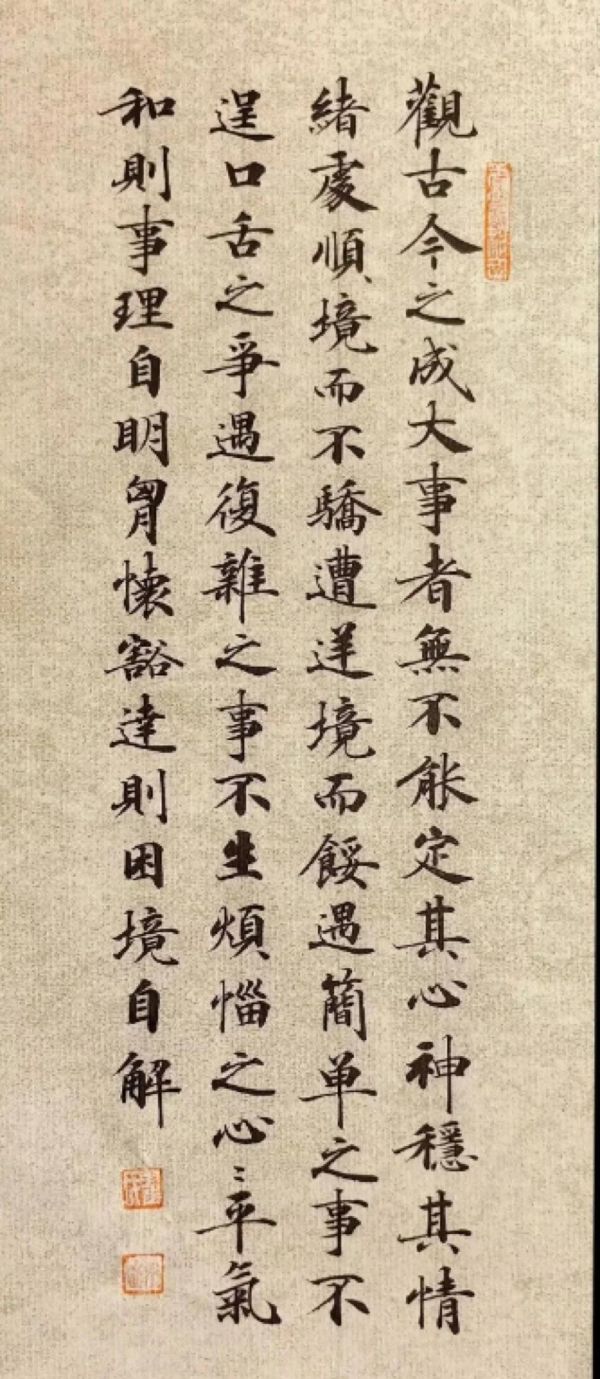 觀古今之成大事者無不能定其心神穩其情
緒處順境而不驕遭逆境而餒遇簡単之事不
逞口舌之爭遇復雜之事不生煩惱之心〻平氣
和則事理自明胷懷豁達則困境自解